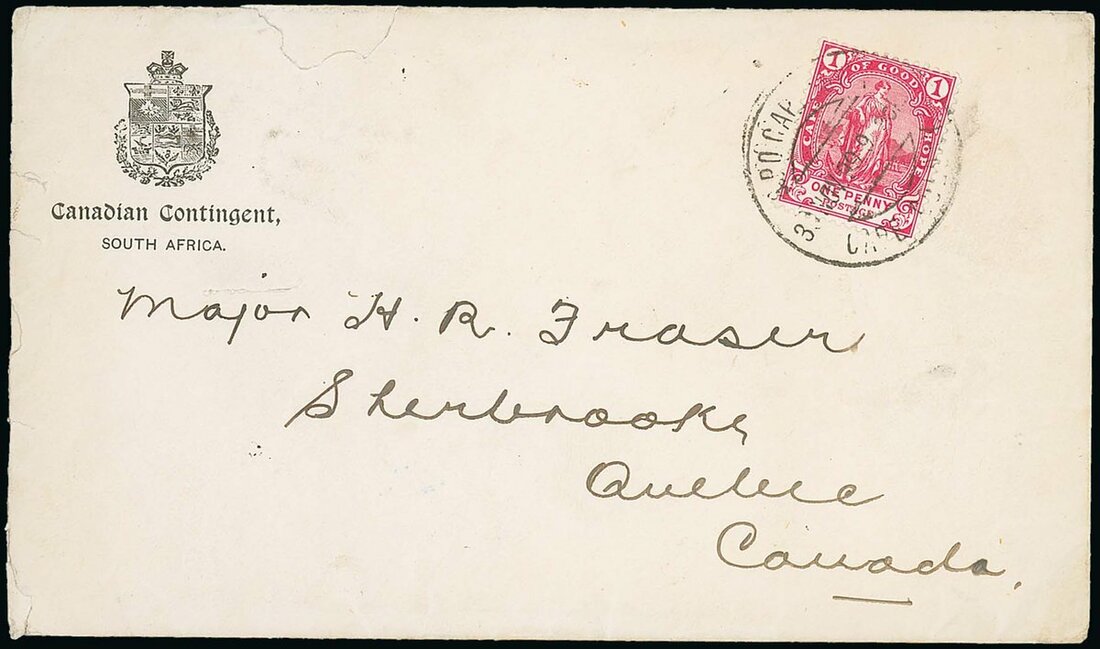 Canadian Contingent,
SOUTH AFRICA.
1 OF GOOD 1
CAPE
HOPE
ONE PENNY
POSTAGE
Major H. R. Fraser
Sherbrooke
Quebec
Canada.